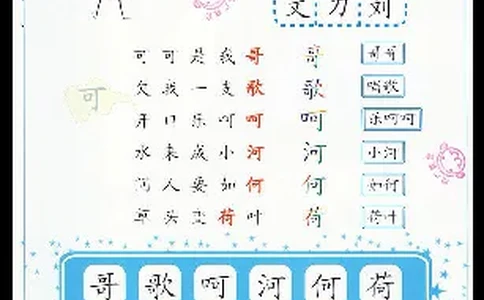 文 力 刘
可 可 是 我 哥 哥 哥哥
欠 我 一 支 歌 歌 唱歌
开 口 乐 呵 呵 呵 乐呵呵
可
水 来 成 小 河 河 小河
问 人 要 如 何 何 如何
草 头 变 荷 叶 荷 荷叶
哥 歌 呵 河 何 荷